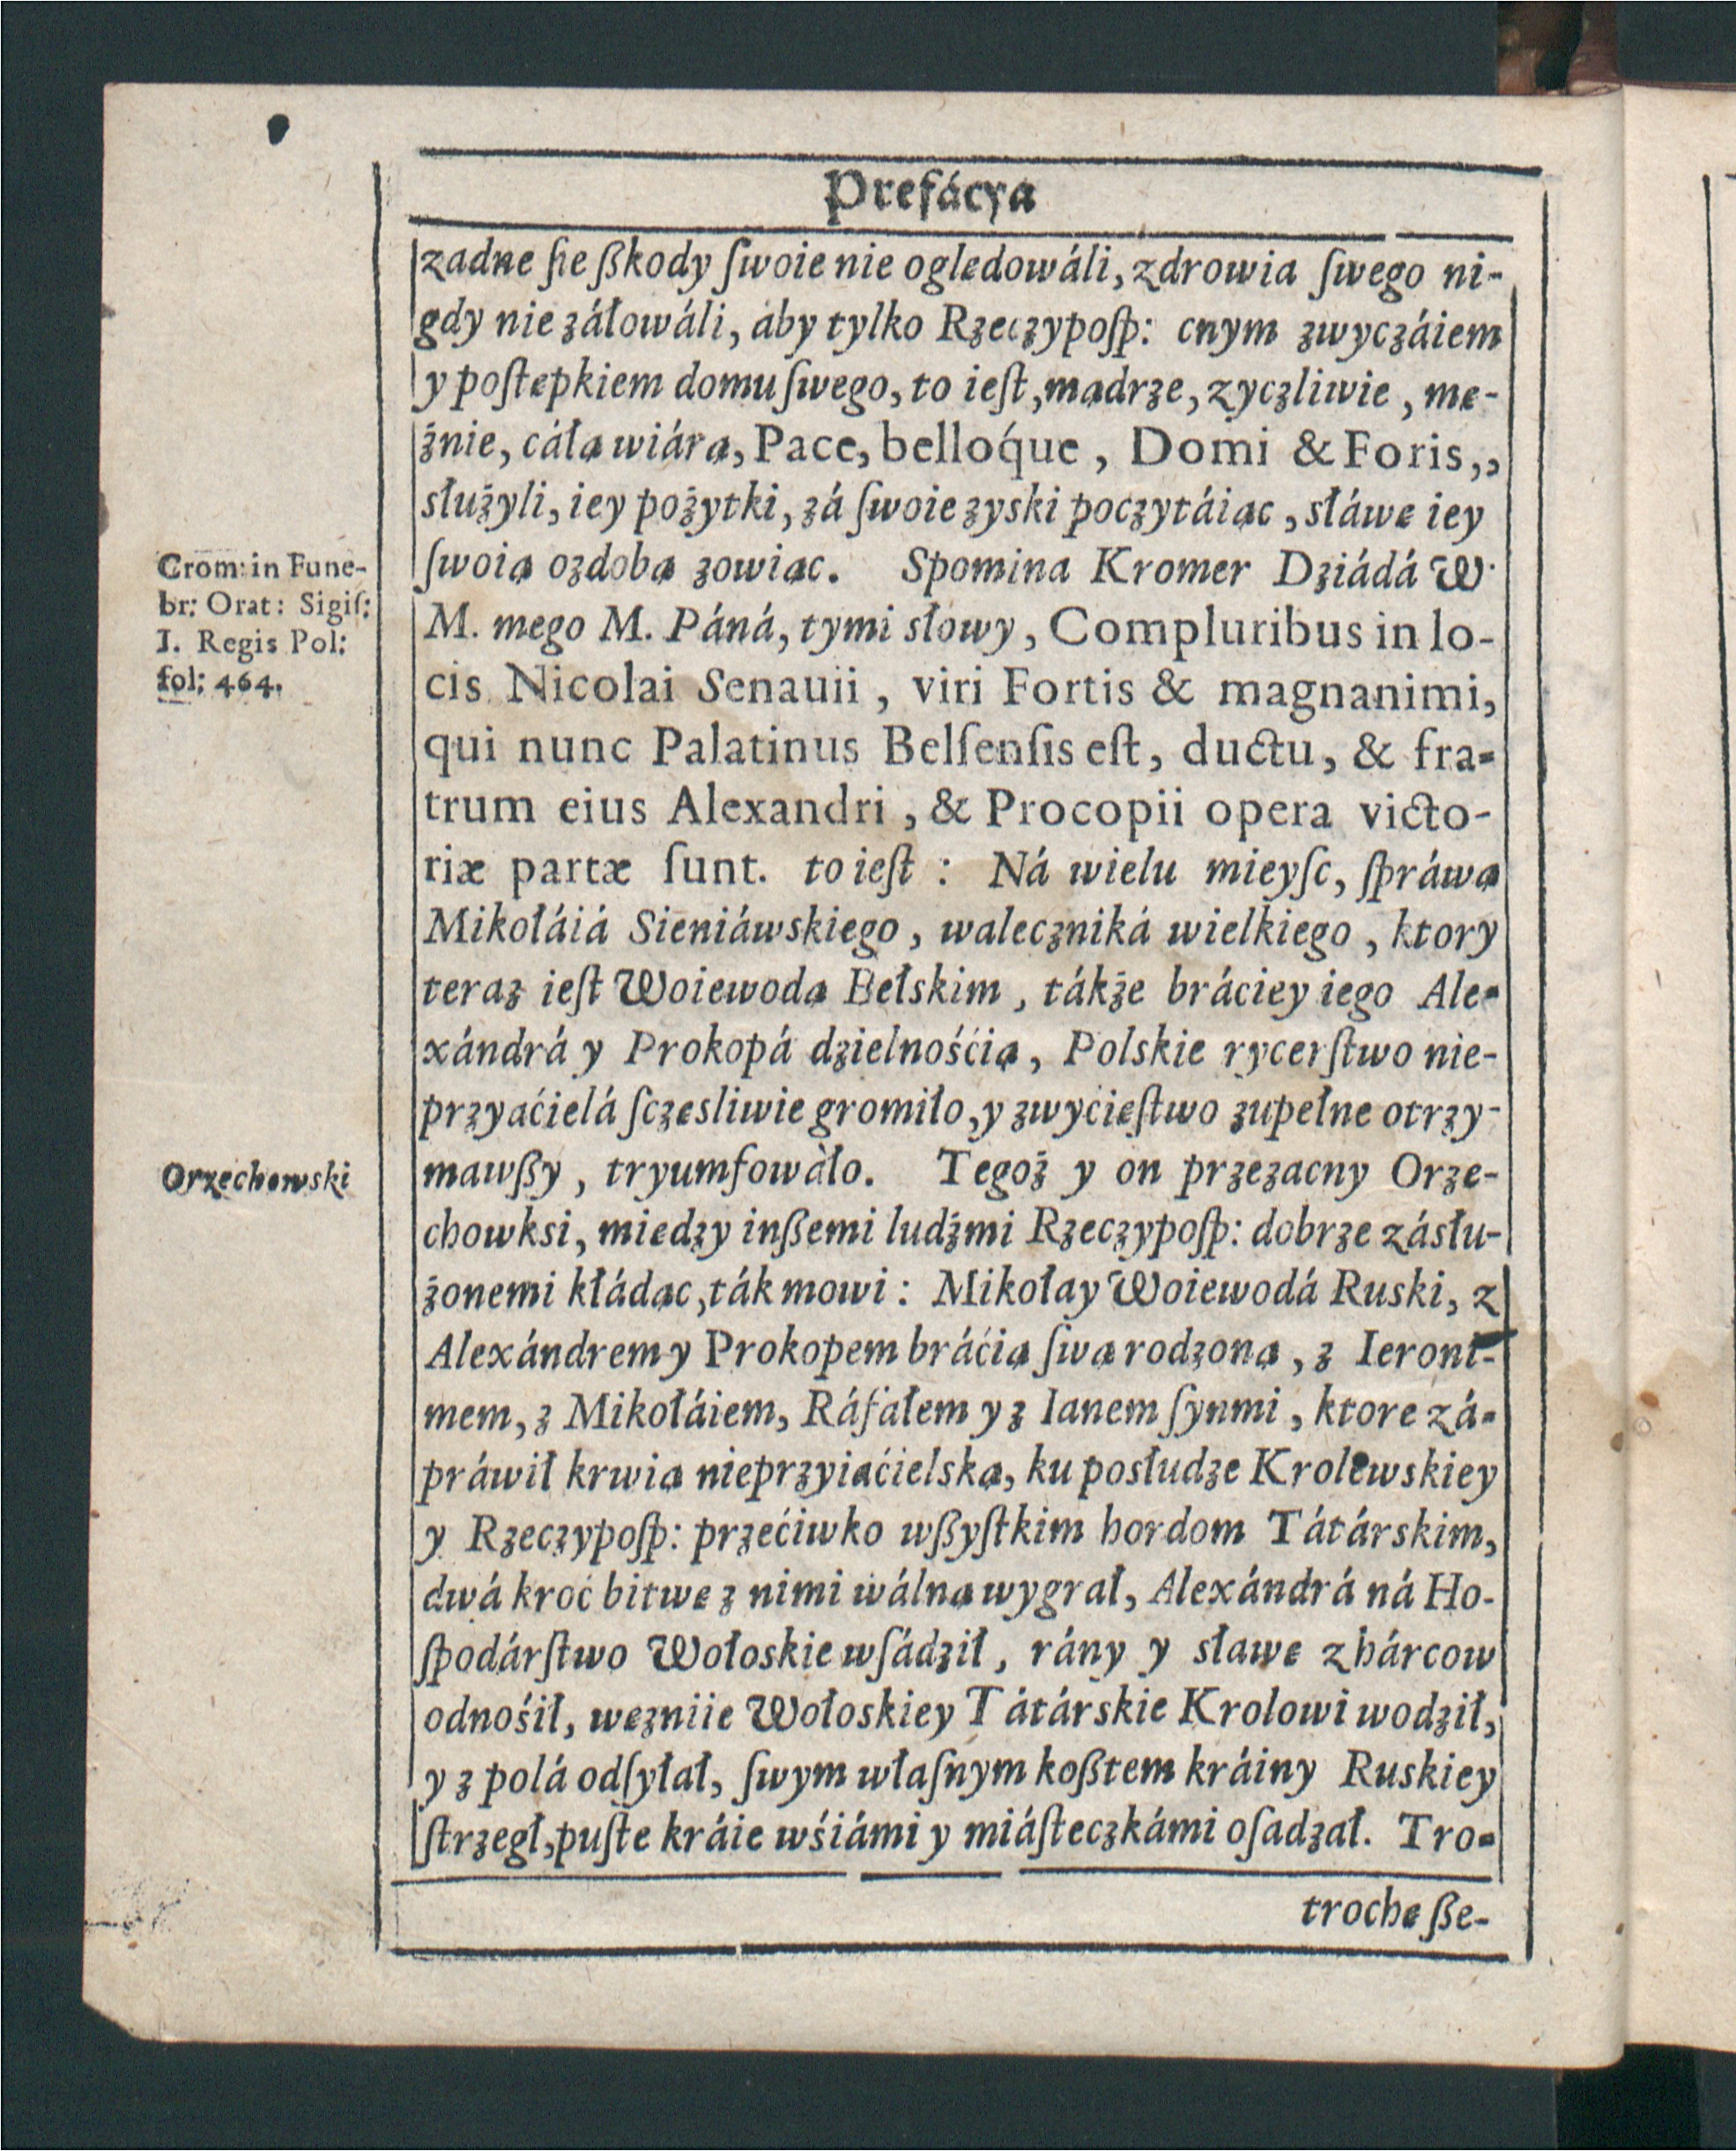 Prefácya
zadne ſie ßkody ſwoie nie oględowáli, zdrowia ſwego ni-
gdy nie záłowáli, áby tylko Rzeczypoſp: cnym zwyczáiem
y poſtępkiem domu ſwego, to ieſt, mądrze, zyczliwie, mę-
żnie, cáłą wiárą, Pace, belloq́ue, Domi & Foris,,
służyli, iey pożytki, zá ſwoie zyski poczytáiąc, sławę iey
ſwoią ozdobą zowiąc. Spomina Kromer Dziádá W.
M. mego M. Páná, tymi słowy, Compluribus in lo-
cis Nicolai Senauii, viri Fortis & magnanimi,
qui nunc Palatinus Belſenſis eſt, ductu, & fra-
trum eius Alexandri, & Procopii opera victo-
riæ partæ ſunt. to ieſt : Ná wielu mieyſc, ſpráwą
Mikołáiá Sieniáwskiego, waleczniká wielkiego, ktory
teraz ieſt Woiewodą Bełskim, tákże bráciey iego Ale-
xándrá y Prokopá dzielnośćią, Polskie rycerſtwo nie-
przyaćielá ſczęsliwie gromiło, y zwyćięſtwo zupełne otrzy-
mawßy, tryumfowàło. Tegoż y on przezacny Orze-
chowksi, miedzy inßemi ludźmi Rzeczypoſp: dobrze zásłu-
żonemi kłádąc, ták mowi : Mikołay Woiewodá Ruski, z
Alexándrem y Prokopem bráćią ſwą rodzoną, z Ieroni-
mem, z Mikołáiem, Ráfałem y z Ianem ſynmi, ktore zá-
práwił krwią nieprzyiaćielską, ku posłudze Krolewskiey
y Rzeczypoſp: przećiwko wßyſtkim hordom Tátárskim,
dwá kroć bitwę z nimi wálną wygrał, Alexándrá ná Ho-
ſpodárſtwo Wołoskie wſádził, rány y sławę z hárcow
odnośił, węzniie Wołoskiey Tátárskie Krolowi wodził,
y z polá odſyłał, ſwym właſnym koßtem kráiny Ruskiey
ſtrzegł, puſte kráie wśiámi y miáſteczkámi oſadzał. Tro-
trochę ße-
Crom: in Fune-
br: Orat: Sigiſ:
I. Regis Pol:
fol: 464.
Orzechowski